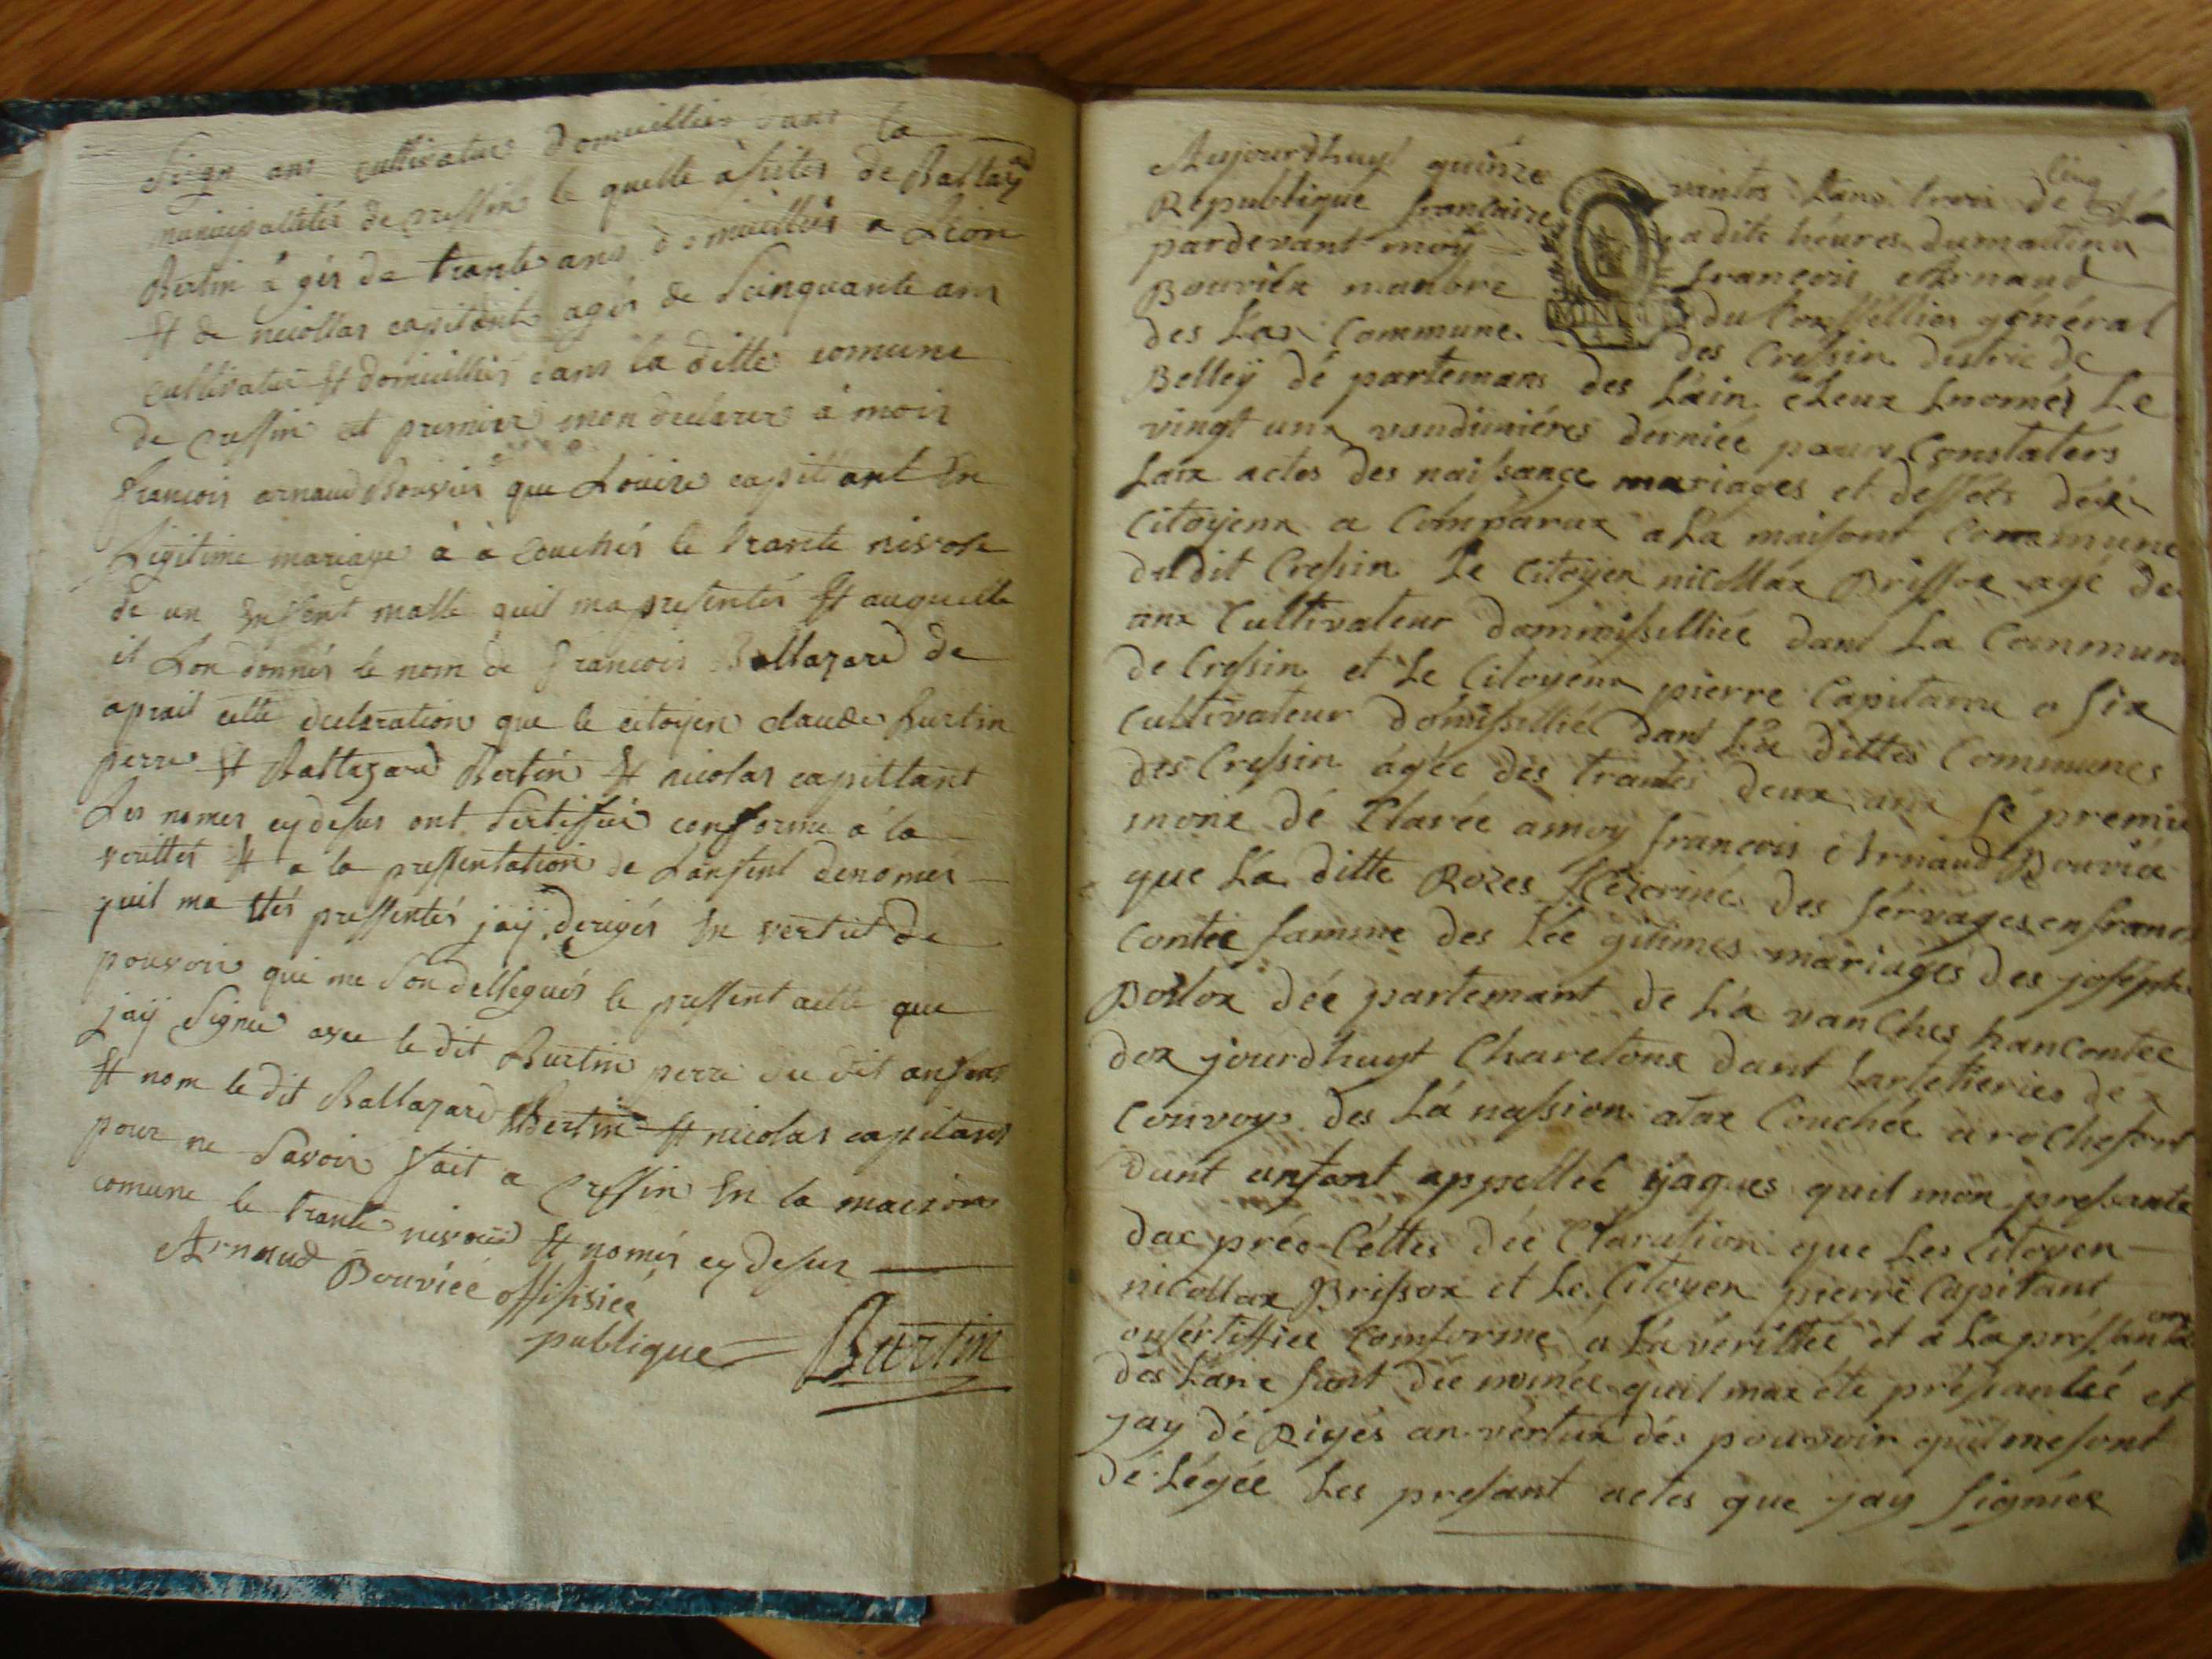 Sisan ans cultivateur domicillier dans la
municipallités de Cressin le quelle assistés de Baltazard
Bertin âgés de trante ans domicilliés a Lion
Et de nicollas capitant agés de Scinquante ans
cultivateur Et domicilliés dans la ditte comune
de Cressin et premiere mon declarer à mois
francois arnaud Bouvier que Louise capittant En
Légitime mariage à à couchés le trante nivose
de un Enfent malle quil ma presentés Et auquelle
il Lon donnés le nom de francois Baltazard de
aprail cette declaration que le citoyen claude Burtin
perre Et Baltazard Bertin Et nicolas capittant
Les nomes cy desus ont Sertiffié conforme a la
verittés Et a la pressentation de Lansent denomés
quil ma Etés pressentés jaÿ derigés En vertut de
pouvoir qui me Son dellegués le pressent acte que
jaÿ Signe avec le dit Burtin perre du dit ansent
Et nom le dit Baltazard Bertin Et nicolas capitant
pour ne Savoir fait a Cressin En la maison
comune le trante nivose Et només cy desus
Arnaud Bouviée offissiée
publique Burtin
Aujourdhuyt quinze vantos Lans trois de Cinq La
Republique francaize a dite héures dumattina
pardevant moÿ francois Arnaud
Bouviéx manbre du Conséllier général
des Lax Commune des Cressin destric de
Belleÿ dé partemans des Láin éLeux Lnomés Le
vingt unx vandimiéres derniée pour Constatérs
Laix actes des naissance mariages et dessés déx
Citoÿenx a Comparux a La maisont Commune
dudit Cressin Le Citoÿen nicollax Brissox agé de
anx Cultivateur dommissilliéé dant La Commun
de Cressin et Le Citoyenx pierre Capitanx a six
Cultivateur domissillié dant Láx dittes Communes
des Cressin ágée des trantes deux anx sé premie
monx dé Claréé amoy francois Arnaud Bouviéx
que Lá ditte Rozes des Sérvages en franc
Contée famme des Léé gitimes mariages des joseph
Boilox déé partemant de Lá vanChes hancontee
dox jourdhuyt Charetonx dant Lartelieries déx
Convoy des Lá nassion atax Couchéé a rochefort
dunt anfant appellée yaques quil mon presante
dax prée Céttes déé Claration que Les Citoyen
nicollax Brissox et Le Citoyen pierre Capitant
onsértiffiéé Comforme a Lá vérittée et a Lá préssantas
des Lanx fant déé nomée quil max été présantéé et
jay dé Rigés an vertux dés pouvoir quil mesont
dé Légéé Les presant actes que jay signiéx